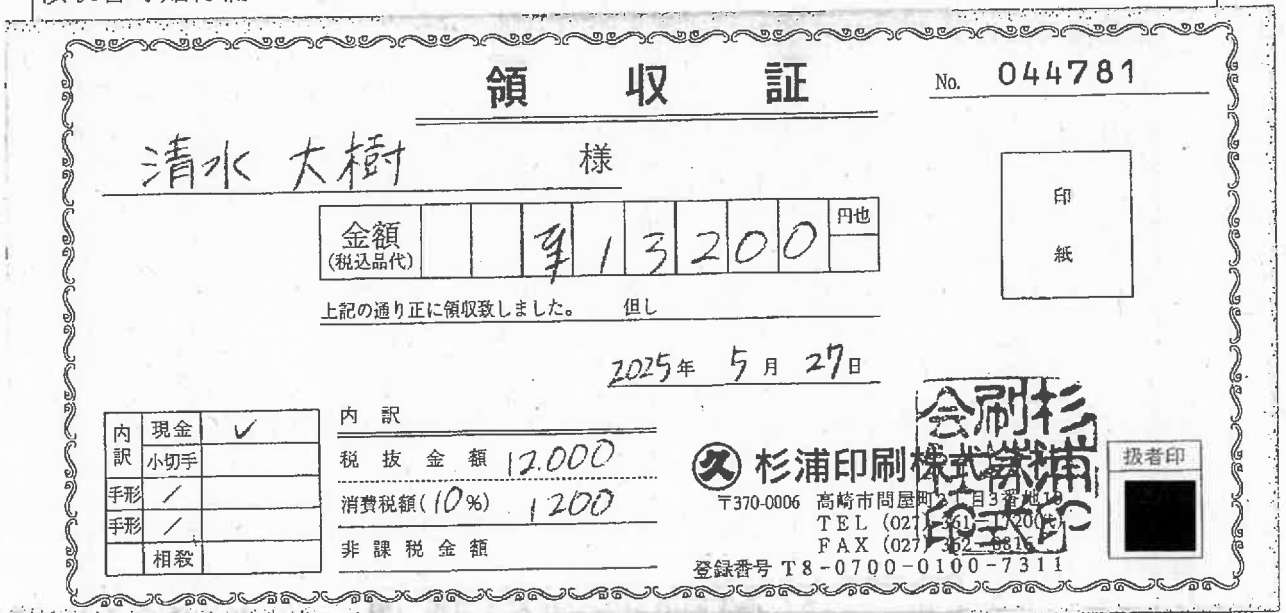 領収証
No. 044781
清水 大樹 様
金額 (税込品代) ¥13200 円也
上記の通り正に領収致しました。 但し
印紙
2025年 5月 27日
内訳 現金 ✓
小切手
手形 /
手形 /
相殺
内訳
税抜金額 12.000
消費税額(10%) 1200
非課税金額
久 杉浦印刷株式会社
〒370-0006 高崎市問屋町2丁目3番地
TEL (027) 361-1720(代)
FAX (027) 362-8816
登録番号 T8-0700-0100-7311
扱者印